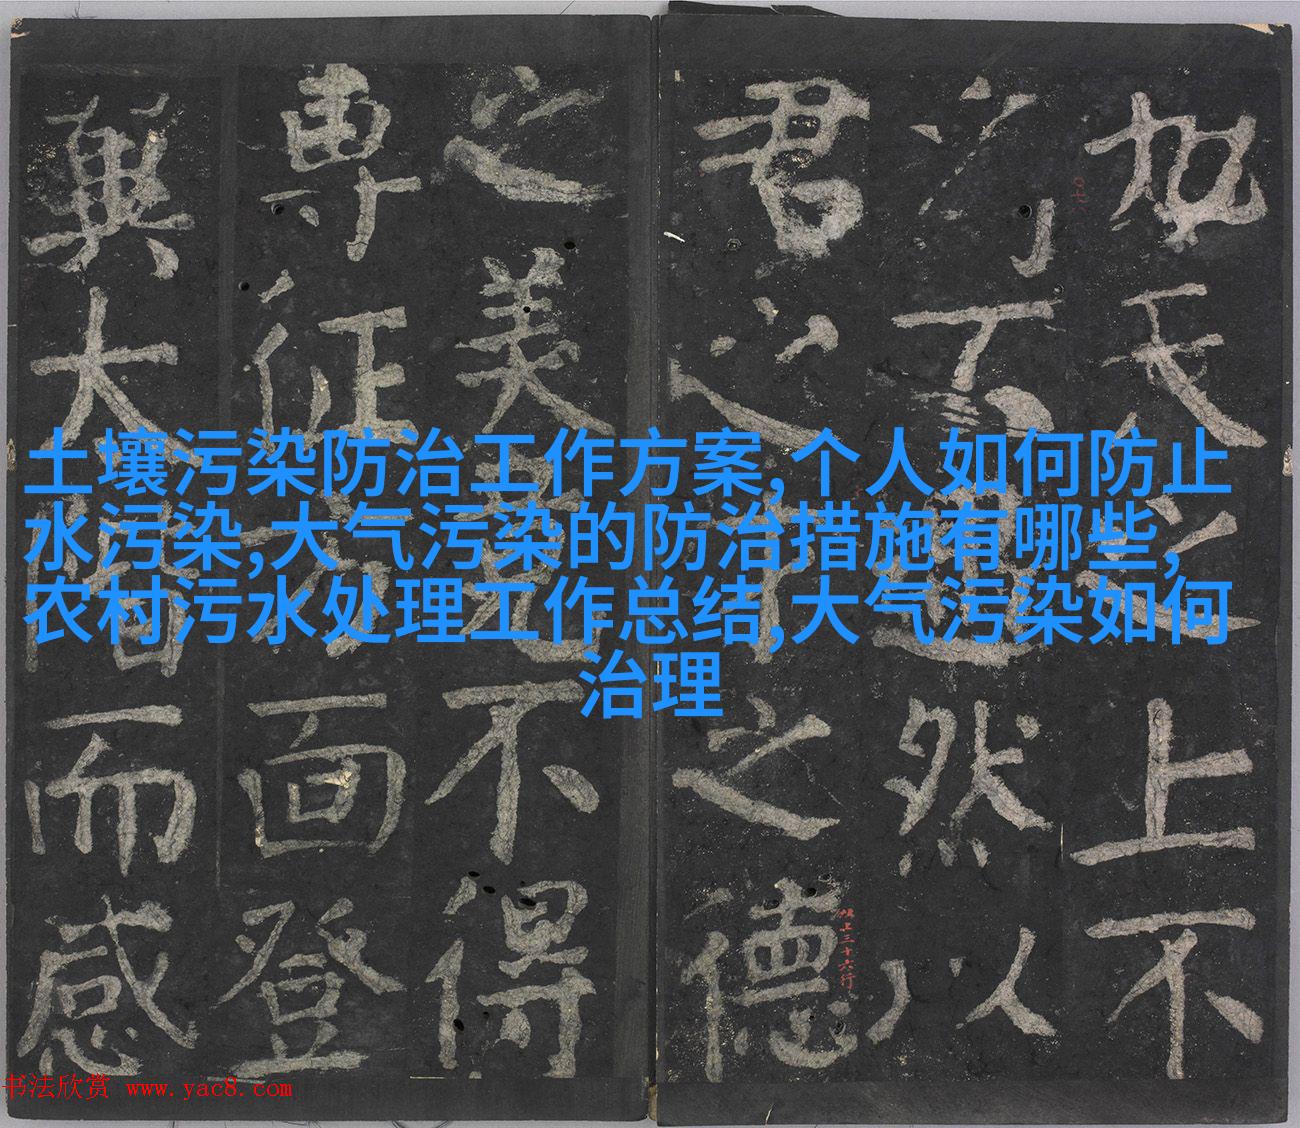 土壤污染防治工作方案,个人如何防止
水污染,大气污染的防治措施有哪些,
农村污水处理工作总结,大气污染如何
治理
加天之上不
不然以
君之之德
之美不得
專征面登
興大階而感
上三十六行
书法欣赏 www.yac8.com